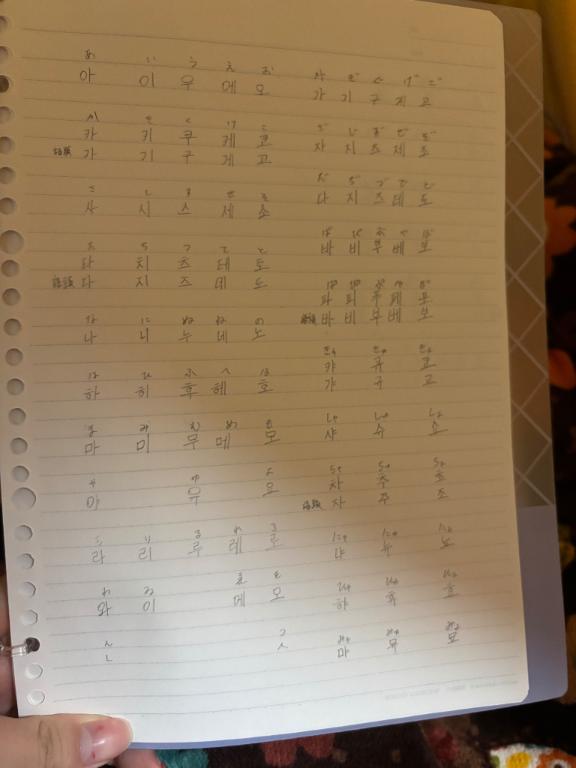 あ い う え お
아 이 우 에 오
か き く け こ
카 키 쿠 케 코
語頭 가 기 구 게 고
さ し す せ そ
사 시 스 세 소
た ち つ て と
타 치 츠 테 토
語頭 다 지 즈 데 도
な に ぬ ね の
나 니 누 네 노
は ひ ふ へ ほ
하 히 후 헤 호
ま み む め も
마 미 무 메 모
や ゆ よ
야 유 요
ら り る れ ろ
라 리 루 레 로
わ ゐ ゑ を
와 이 에 오
ん っ
ㄴ ㅅ
が ぎ ぐ げ ご
가 기 구 게 고
ざ じ ず ぜ ぞ
자 지 즈 제 조
だ ぢ づ で ど
다 지 즈 데 도
ば び ぶ べ ぼ
바 비 부 베 보
ぱ ぴ ぷ ぺ ぽ
파 피 푸 페 포
語頭 바 비 부 베 보
きゃ きゅ きょ
캬 큐 쿄
갸 규 교
しゃ しゅ しょ
샤 슈 쇼
ちゃ ちゅ ちょ
차 추 초
語頭 자 주 조
にゃ にゅ にょ
냐 뉴 뇨
ひゃ ひゅ ひょ
햐 휴 효
みゃ みゅ みょ
먀 뮤 묘